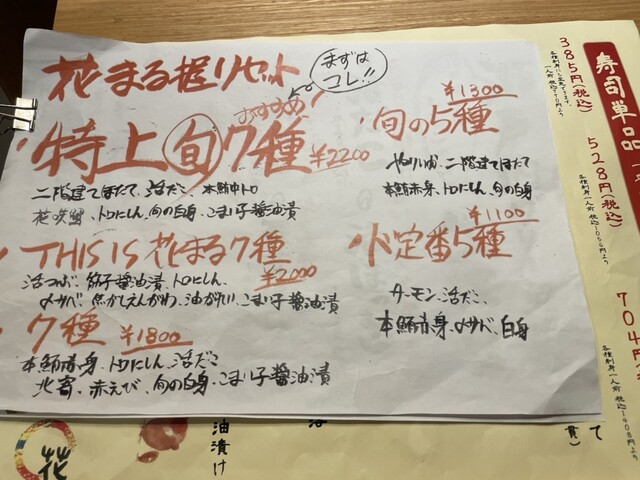 花まる握りセット
まずは
コレ!!
おすすめ!
特上旬7種 ¥2200
二階建てほたて、活だこ、本鮪中トロ
花咲蟹、トロにしん、旬の白身、こまい子醤油漬
THIS IS 花まる7種
¥2000
活つぶ、筋子醤油漬、トロにしん、
〆サバ、焦がしえんがわ、油がれい、こまい子醤油漬
7種 ¥1800
本鮪赤身、トロにしん、活だこ
北寄、赤えび、旬の白身、こまい子醤油漬
¥1300
旬の5種
やりいか、二階建てほたて
本鮪赤身、トロにしん、旬の白身
¥1100
ド定番5種
サーモン、活だこ、
本鮪赤身、〆サバ、白身
寿司単品
385円(税込)
528円(税込)
704円
花
油漬け